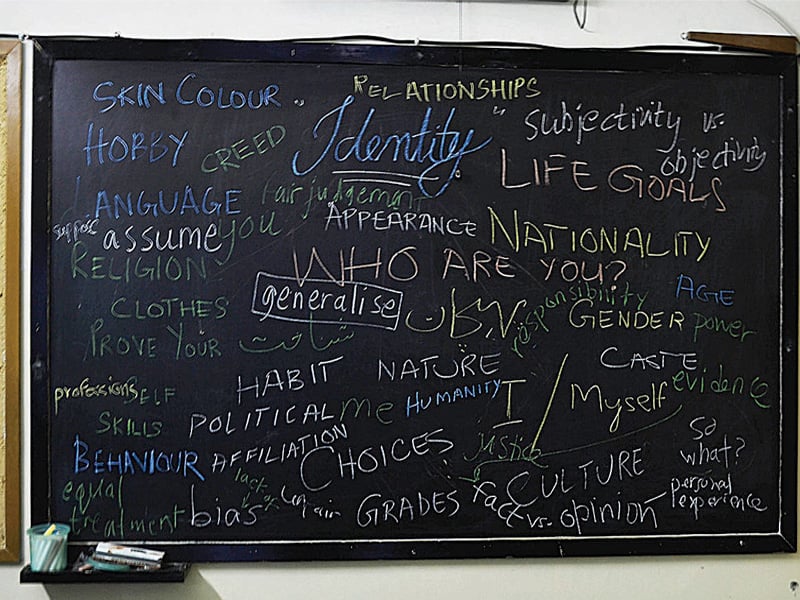 SKIN COLOUR
RELATIONSHIPS
"Identity"
Subjectivity vs.
objectivity
HOBBY
CREED
LIFE GOALS
LANGUAGE
Fair judgement
suppose
assume you
APPEARANCE
NATIONALITY
RELIGION
WHO ARE YOU?
AGE
CLOTHES
generalise
responsibility
GENDER
power
PROVE YOUR
SELF
شناخت
HABIT
NATURE
CASTE
professions
evidence
SKILLS
POLITICAL
AFFILIATION
me
HUMANITY
I / Myself
BEHAVIOUR
CHOICES
justice
So
what?
equal
treatment
lack of
bias
GRADES
CULTURE
Fact vs. opinion
personal
experience